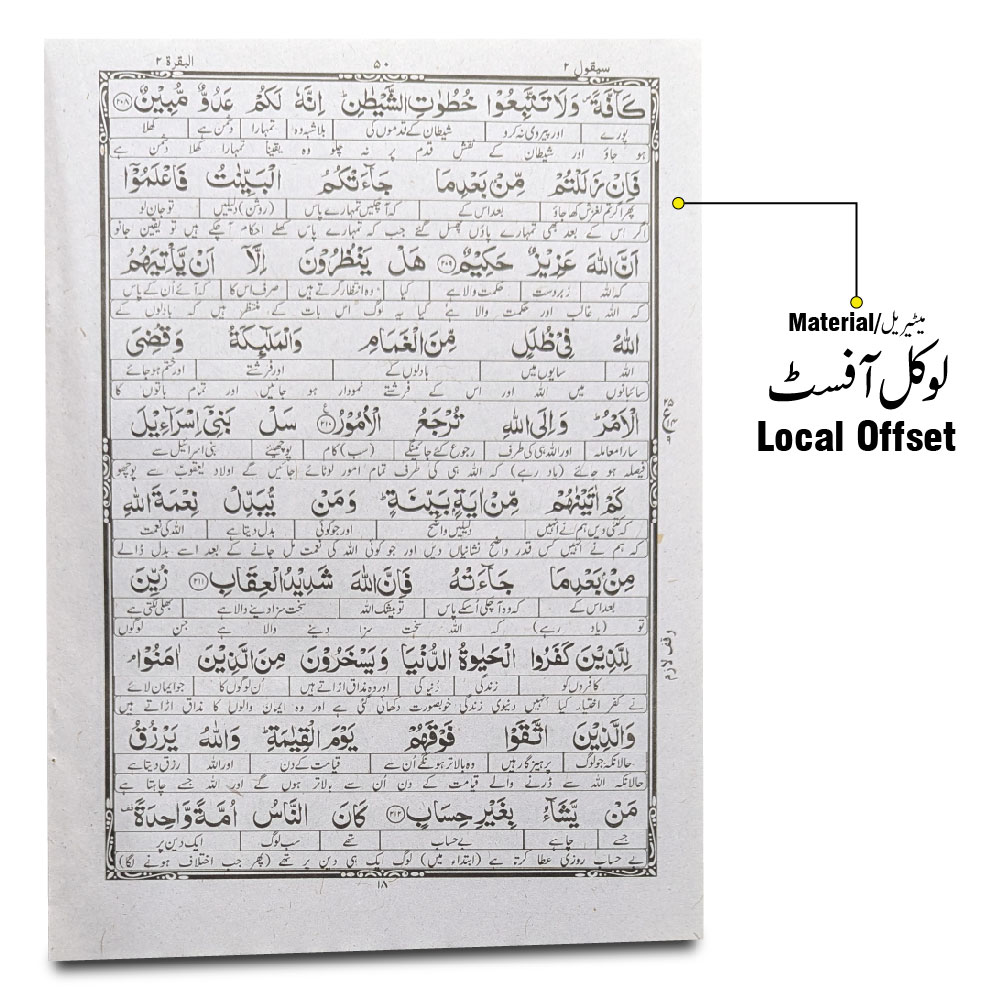 سیقول ٢
٥٠
البقرة ٢
كَآفَّةً وَلَا تَتَّبِعُوْا خُطُوٰتِ الشَّيْطٰنِ ؕ اِنَّهٗ لَكُمْ عَدُوٌّ مُّبِيْنٌ ۝٢٠٨
پورے | اور پیروی نہ کرو | شیطان کے قدموں کی | بلاشبہ وہ | تمہارا | دشمن ہے | کھلا
ہو جاؤ اور شیطان کے نقش قدم پر نہ چلو وہ یقینا تمہارا کھلا دشمن ہے
فَاِنْ زَلَلْتُمْ مِّنْۢ بَعْدِ مَا جَآءَتْكُمُ الْبَيِّنٰتُ فَاعْلَمُوْۤا
پھر اگر تم لغزش کھا جاؤ | بعد اس کے | کہ آچکیں تمہارے پاس | (روشن) دلیلیں | تو جان لو
اگر اس کے بعد بھی تمہارے پاؤں پھسل گئے جب کہ تمہارے پاس کھلے احکام آچکے ہیں تو یقین جانو
اَنَّ اللّٰهَ عَزِيْزٌ حَكِيْمٌ ۝٢٠٩ هَلْ يَنْظُرُوْنَ اِلَّاۤ اَنْ يَّاْتِيَهُمُ
کہ اللہ | زبردست | حکمت والا ہے | کیا | وہ انتظار کرتے ہیں | صرف اس کا | کہ آئے اُن کے پاس
کہ اللہ غالب اور حکمت والا ہے کیا یہ لوگ اس بات کے منتظر ہیں کہ بادلوں کے
اللّٰهُ فِيْ ظُلَلٍ مِّنَ الْغَمَامِ وَالْمَلٰٓئِكَةُ وَقُضِيَ
اللہ | سایوں میں | بادلوں کے | اور فرشتے | اور ختم ہو جائے
سائبانوں میں اللہ اور اس کے فرشتے نمودار ہو جائیں اور تمام باتوں کا
الْاَمْرُ ؕ وَاِلَى اللّٰهِ تُرْجَعُ الْاُمُوْرُ ۝٢١٠ سَلْ بَنِيْۤ اِسْرَآءِيْلَ
سارا معاملہ | اور اللہ ہی کی طرف | رجوع کئے جائینگے | (سب) کام | پوچھئے | بنی اسرائیل سے
فیصلہ ہو جائے (یاد رہے) کہ اللہ ہی کی طرف تمام امور لوٹائے جائیں گے اولاد یعقوب سے پوچھو
كَمْ اٰتَيْنٰهُمْ مِّنْ اٰيَةٍۭ بَيِّنَةٍ ؕ وَمَنْ يُّبَدِّلْ نِعْمَةَ اللّٰهِ
کہ کتنی دیں ہم نے انہیں | دلیلیں واضح | اور جو کوئی | بدل دیتا ہے | اللہ کی نعمت
کہ ہم نے انہیں کس قدر واضح نشانیاں دیں اور جو کوئی اللہ کی نعمت مل جانے کے بعد اسے بدل ڈالے
مِنْۢ بَعْدِ مَا جَآءَتْهُ فَاِنَّ اللّٰهَ شَدِيْدُ الْعِقَابِ ۝٢١١ زُيِّنَ
بعد اس کے | کہ وہ آ چکی اُسکے پاس | تو بیشک اللہ | سخت سزا دینے والا ہے | بھلی لگتی ہے
تو (یاد رہے) کہ اللہ سخت سزا دینے والا ہے جن لوگوں
لِلَّذِيْنَ كَفَرُوا الْحَيٰوةُ الدُّنْيَا وَيَسْخَرُوْنَ مِنَ الَّذِيْنَ اٰمَنُوْا ۘ
کافروں کو | زندگی | دُنیا کی | اور وہ مذاق اڑاتے ہیں | اُن لوگوں کا | جو ایمان لائے
نے کفر اختیار کیا انہیں دنیوی زندگی خوبصورت دکھائی گئی ہے اور وہ ایمان والوں کا مذاق اڑاتے ہیں
وَالَّذِيْنَ اتَّقَوْا فَوْقَهُمْ يَوْمَ الْقِيٰمَةِ ؕ وَاللّٰهُ يَرْزُقُ
حالانکہ جو لوگ | پرہیزگار ہیں | وہ بالاتر ہونگے اُن سے | قیامت کے دن | اور اللہ | رزق دیتا ہے
حالانکہ اللہ سے ڈرنے والے قیامت کے دن اُن سے بالاتر ہوں گے اور اللہ جسے چاہتا ہے
مَنْ يَّشَآءُ بِغَيْرِ حِسَابٍ ۝٢١٢ كَانَ النَّاسُ اُمَّةً وَّاحِدَةً
جسے | چاہے | بے حساب | تھے | سب لوگ | ایک دین پر
بے حساب روزی عطا کرتا ہے (ابتداء میں) لوگ ایک ہی دین پر تھے (پھر جب اختلاف ہونے لگا)
وقف لازم
١٨
Material/میٹیریل
لوکل آفسٹ
Local Offset